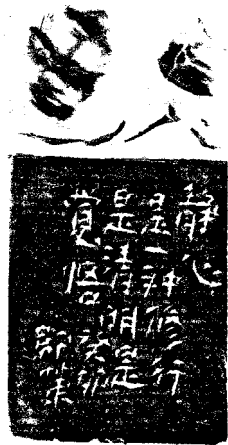 静心
是一种修行
是清明是
覺悟癸卯